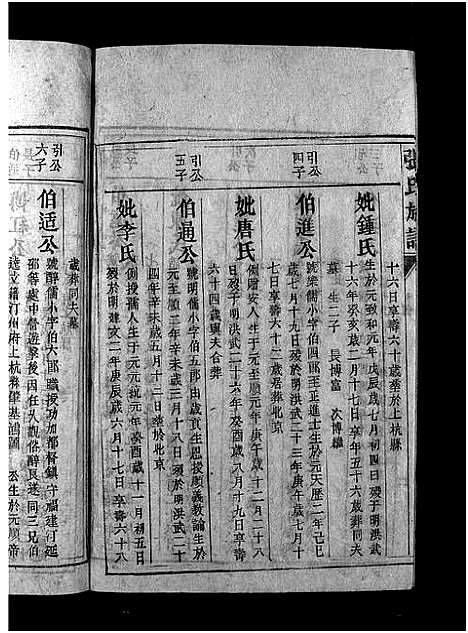 張氏族譜
十六日享壽六十歲塟於上杭縣
妣鍾氏
生於元致和元年戊辰歲七月初四日歿于明洪武
十六年癸亥歲二月二十八日享年五十六歲葬同夫
墓 生二子 長博富 次博
引公四子
伯進公
號梁儒小字伯四郎壬正進士生於元天歷二年己巳
歲七月十九日歿於明洪武二十三年庚午歲七月十
七日享壽六十二歲君葬北京
妣唐氏
側贈安人生于元至順元年庚午歲十二月二十八
日歿于明洪武二十六年癸酉歲八月十九日享壽
六十四歲與夫合葬
引公五子
伯通公
號明儒小字伯五郎由歲貢生恩授順義教諭生於
元至順二年辛未歲三月十八日歿於明洪武二十
四年辛未歲五月十二日塟於北京
妣李氏
側授孺人生於元元統元年癸酉歲十一月初五日
歿於明建文二年庚辰歲六月十七日享壽六十八
歲葬同夫墓
引公六子
伯适公
號
儒小字伯六郎職授功加都督鎮守福建汀延
邵等處中營遊擊後因在入觀俗醇良遂同三兄伯
達立籍汀州府上杭縣肇基
公生於元順帝